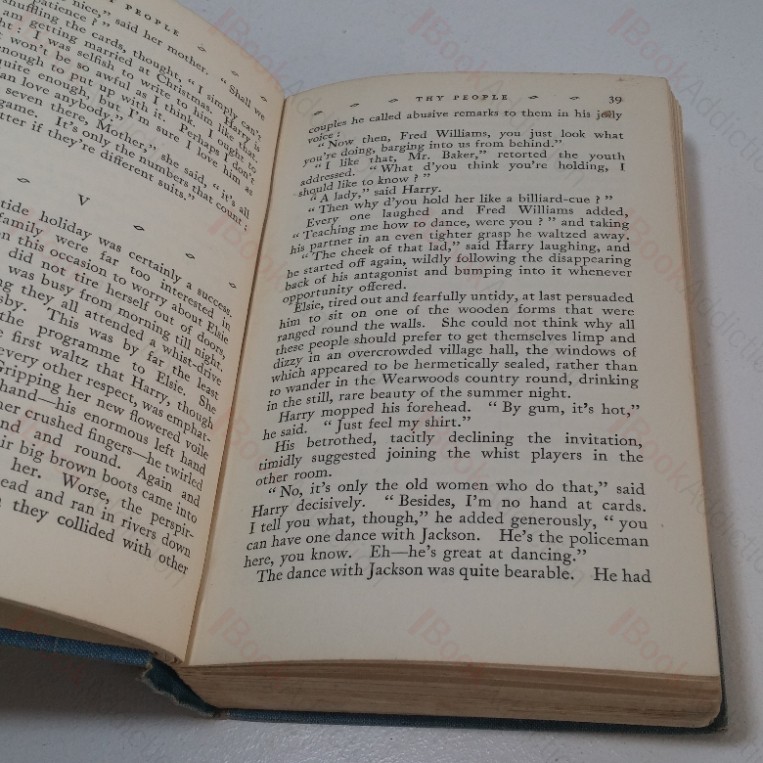 Y PEOPLE
nice," said her mother. "Shall we
patience?"
snuffling the cards, thought, "I simply can't
am getting married at Christmas, and Harry is
I was selfish to think of him like that.
won't be so awful as I think. I ought to
enough to put up with it. Perhaps I don't
quite enough, but I'm sure I love him as
an love anybody."
seven there, Mother," she said, "it's all
game. It's only the numbers that count:
tter if they're different suits."
V
tide holiday was certainly a success.
family were far too interested in
on this occasion to worry about Elsie
did not tire herself out of doors,
was busy from morning till night.
g they all attended a whist-drive
sby. This was by far the least
the programme to Elsie. She
e first waltz that Harry, though
every other respect, was emphat-
Gripping her new flowered voile
hand—his enormous left hand
her crushed fingers—he twirled
nd and round. Again and
ir big brown boots came into
her. Worse, the perspir-
ead and ran in rivers down
they collided with other
THY PEOPLE 39
couples he called abusive remarks to them in his jolly
voice:
"Now then, Fred Williams, you just look what
you're doing, barging into us from behind."
"I like that, Mr. Baker," retorted the youth
addressed. "What d'you think you're holding, I
should like to know?"
"A lady," said Harry.
"Then why d'you hold her like a billiard-cue?"
Every one laughed and Fred Williams added,
"Teaching me how to dance, were you?" and taking
his partner in an even tighter grasp he waltzed away.
"The cheek of that lad," said Harry laughing, and
he started off again, wildly following the disappearing
back of his antagonist and bumping into it whenever
opportunity offered.
Elsie, tired out and fearfully untidy, at last persuaded
him to sit on one of the wooden forms that were
ranged round the walls. She could not think why all
these people should prefer to get themselves limp and
dizzy in an overcrowded village hall, the windows of
which appeared to be hermetically sealed, rather than
to wander in the Wearwoods country round, drinking
in the still, rare beauty of the summer night.
Harry mopped his forehead. "By gum, it's hot,"
he said. "Just feel my shirt."
His betrothed, tacitly declining the invitation,
timidly suggested joining the whist players in the
other room.
"No, it's only the old women who do that," said
Harry decisively. "Besides, I'm no hand at cards.
I tell you what, though," he added generously, "you
can have one dance with Jackson. He's the policeman
here, you know. Eh—he's great at dancing."
The dance with Jackson was quite bearable. He had